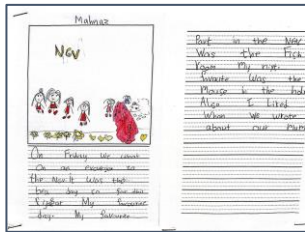 Mahnaz
NGV
On Friday We went
On an excursion to
the NGV It Was the
best day in
My favourite
day. My favourite
Part in the NGV
Was the Fish
My next
favourite Was the
Mouse in the hole
Also I Liked
When We Wrote
about our